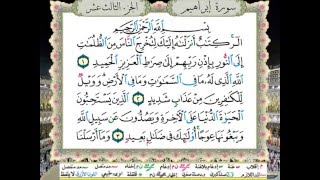 سورة إبراهيم
الجزء الثالث عشر
بِسْمِ اللَّهِ الرَّحْمَٰنِ الرَّحِيمِ
الٓر كِتَٰبٌ أَنزَلْنَٰهُ إِلَيْكَ لِتُخْرِجَ النَّاسَ مِنَ الظُّلُمَٰتِ
إِلَى النُّورِ بِإِذْنِ رَبِّهِمْ إِلَىٰ صِرَٰطِ الْعَزِيزِ الْحَمِيدِ ١
اللَّهِ الَّذِي لَهُ مَا فِي السَّمَٰوَٰتِ وَمَا فِي الْأَرْضِ وَوَيْلٌ
لِّلْكَٰفِرِينَ مِنْ عَذَابٍ شَدِيدٍ ٢ الَّذِينَ يَسْتَحِبُّونَ
الْحَيَوٰةَ الدُّنْيَا عَلَى الْآخِرَةِ وَيَصُدُّونَ عَن سَبِيلِ اللَّهِ
وَيَبْغُونَهَا عِوَجًا أُو۟لَٰٓئِكَ فِي ضَلَٰلٍ بَعِيدٍ ٣ وَمَا أَرْسَلْنَا